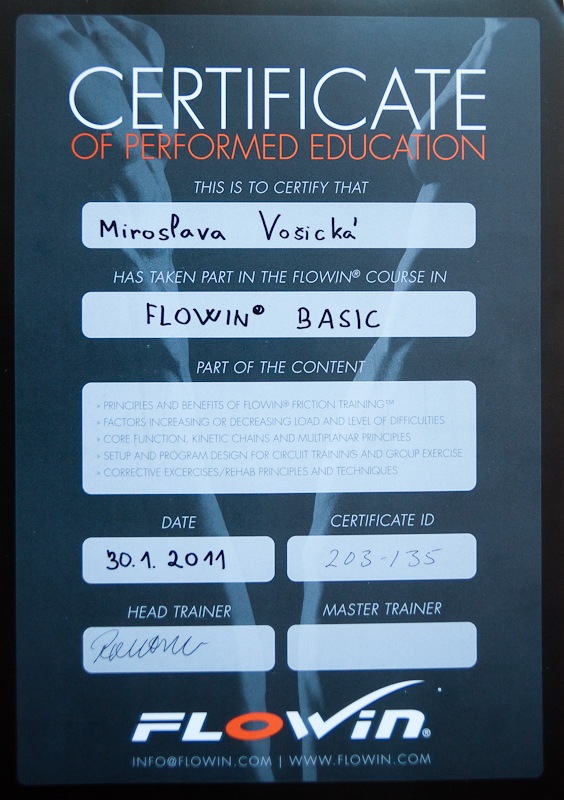 CERTIFICATE
OF PERFORMED EDUCATION
THIS IS TO CERTIFY THAT
Miroslava Vošická
HAS TAKEN PART IN THE FLOWIN® COURSE IN
FLOWIN® BASIC
PART OF THE CONTENT
» PRINCIPLES AND BENEFITS OF FLOWIN® FRICTION TRAINING™
» FACTORS INCREASING OR DECREASING LOAD AND LEVEL OF DIFFICULTIES
» CORE FUNCTION, KINETIC CHAINS AND MULTIPLANAR PRINCIPLES
» SETUP AND PROGRAM DESIGN FOR CIRCUIT TRAINING AND GROUP EXERCISE
» CORRECTIVE EXCERCISES/REHAB PRINCIPLES AND TECHNIQUES
DATE
30.1. 2011
CERTIFICATE ID
203-135
HEAD TRAINER
MASTER TRAINER
FLOWIN®
INFO@FLOWIN.COM | WWW.FLOWIN.COM